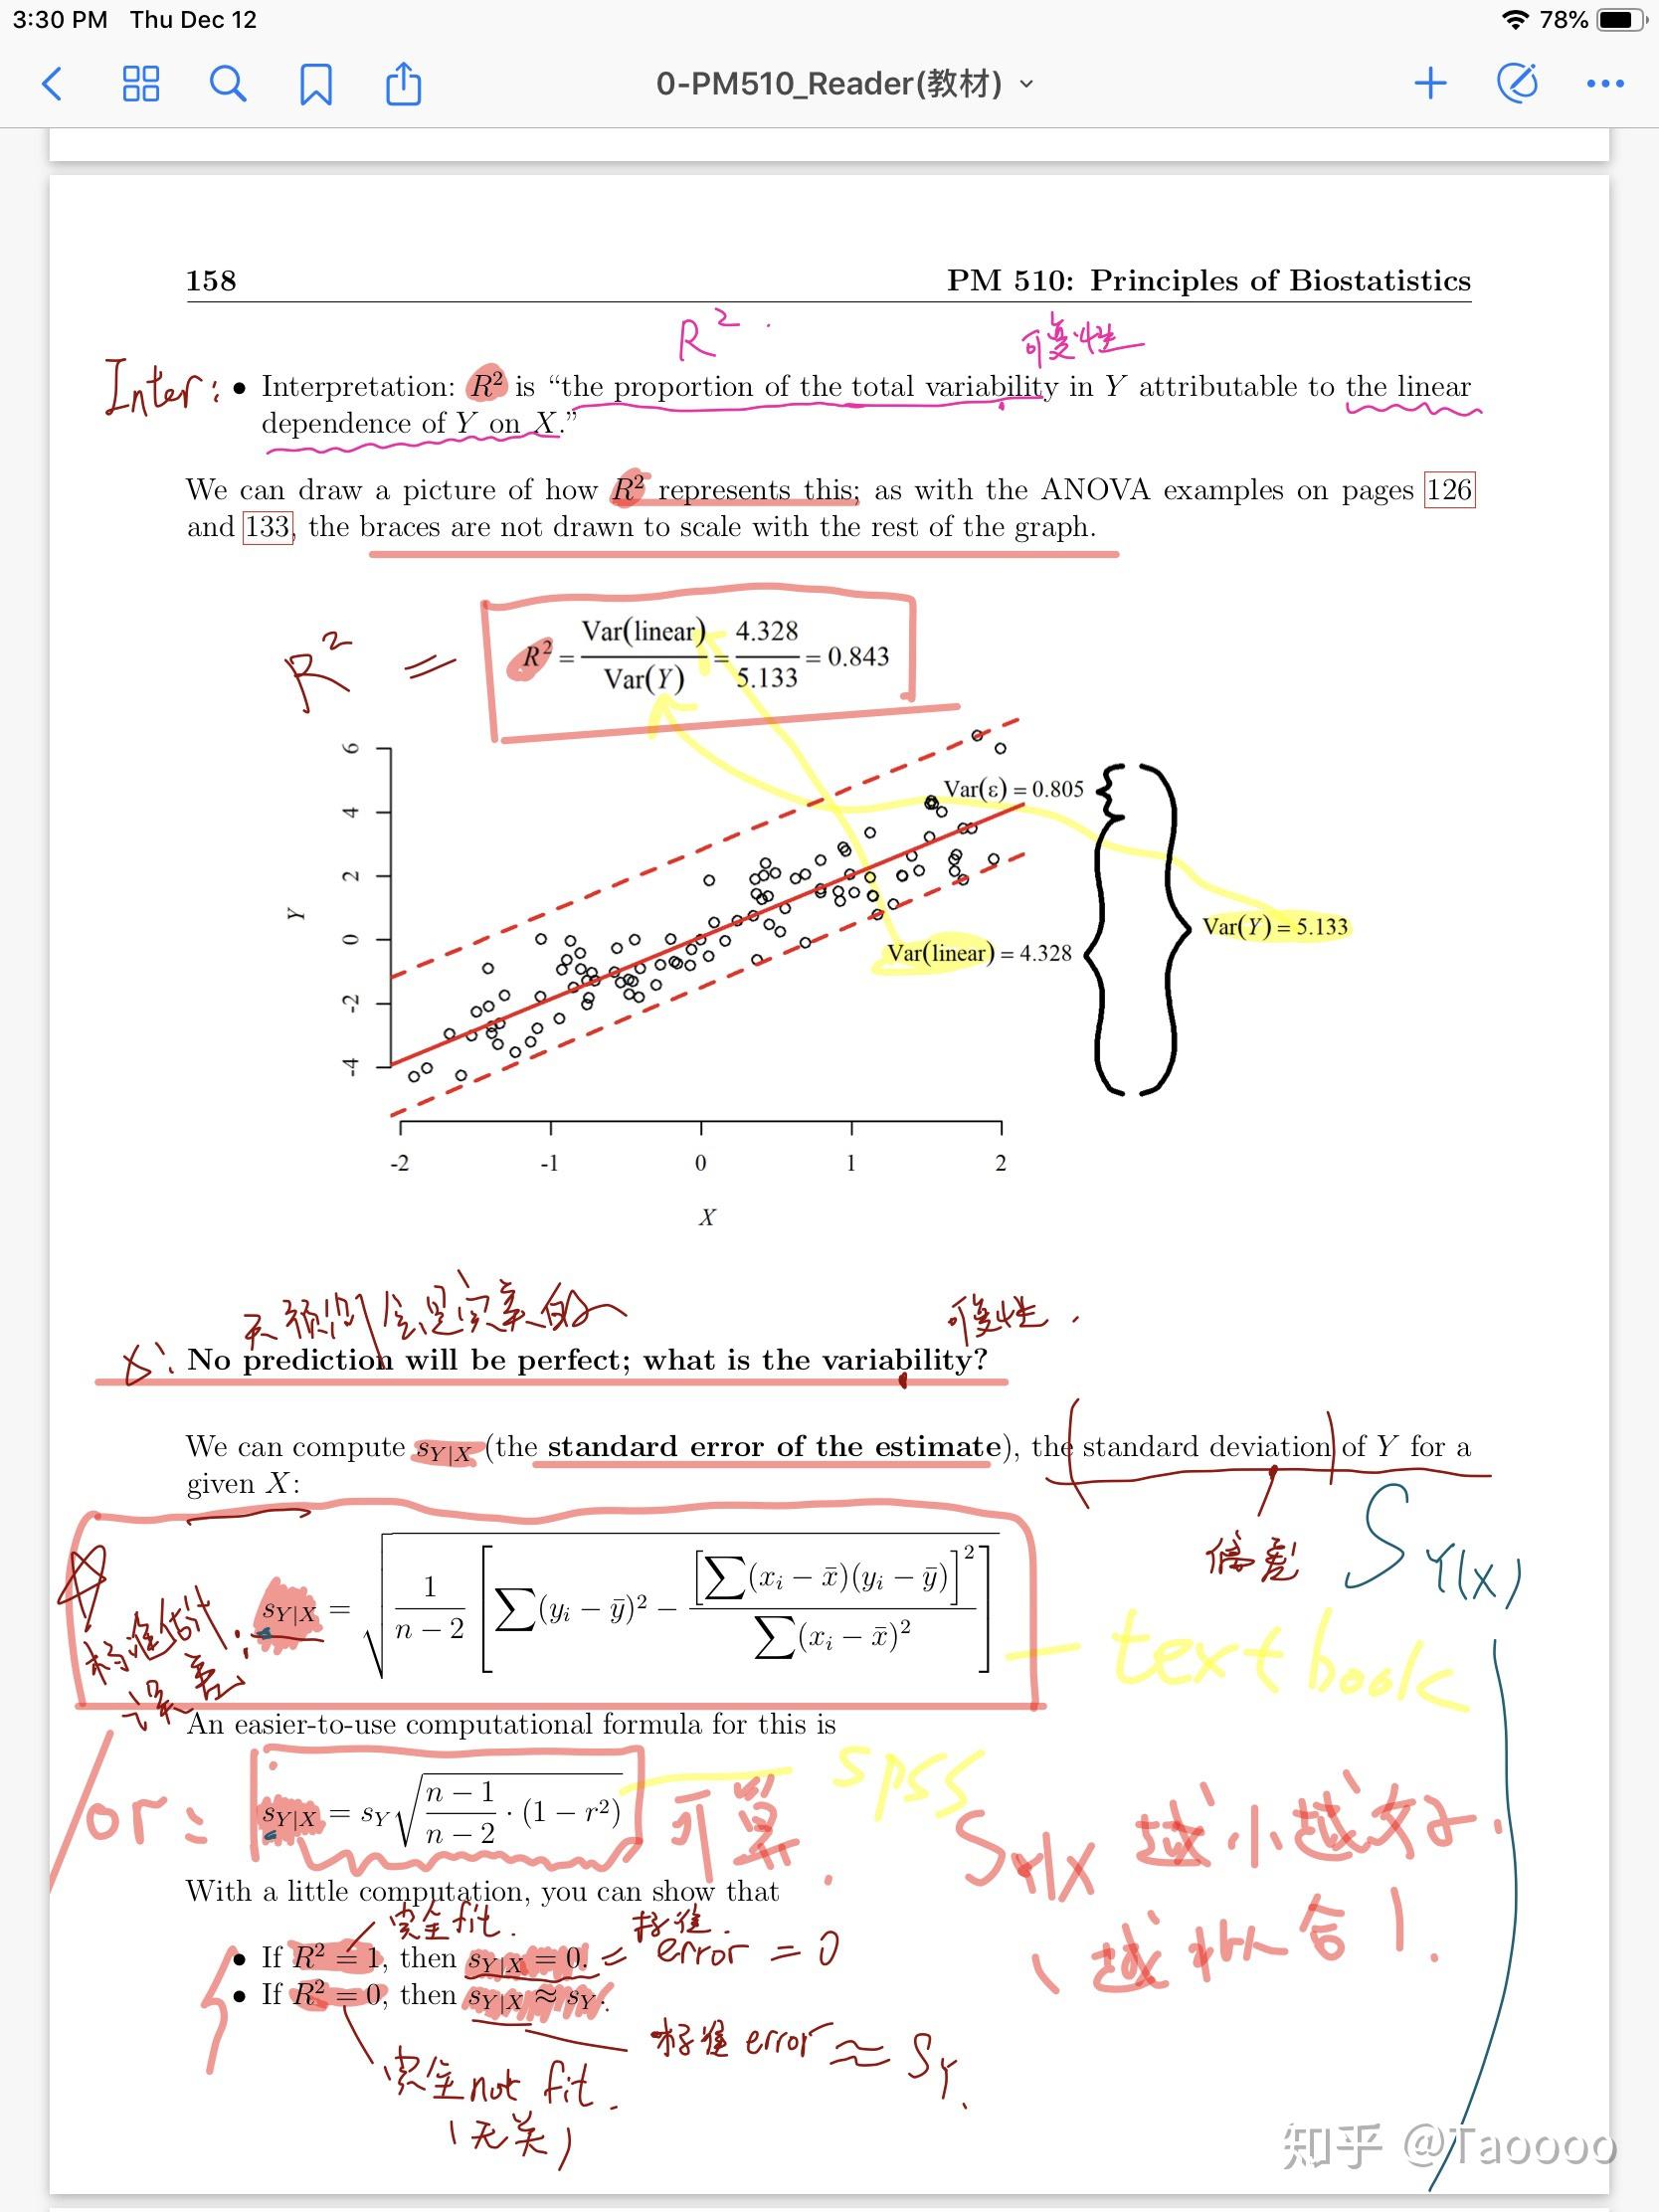 3:30 PM Thu Dec 12 78%
0-PM510_Reader(教材)
158 PM 510: Principles of Biostatistics
R² 可变性
Inter: • Interpretation: R² is “the proportion of the total variability in Y attributable to the linear
dependence of Y on X.”
We can draw a picture of how R² represents this; as with the ANOVA examples on pages 126
and 133, the braces are not drawn to scale with the rest of the graph.
R² = R² = Var(linear) / Var(Y) = 4.328 / 5.133 = 0.843
6
4
2
0
-2
-4
Y
Var(ε) = 0.805
Var(Y) = 5.133
Var(linear) = 4.328
-2 -1 0 1 2
X
可变性
No prediction will be perfect; what is the variability?
We can compute s_{Y|X} (the standard error of the estimate), the standard deviation of Y for a
given X:
偏差 S_{Y|X}
标准估计误差: s_{Y|X} = √( 1/(n − 2) [ ∑(yᵢ − ȳ)² − [∑(xᵢ − x̄)(yᵢ − ȳ)]² / ∑(xᵢ − x̄)² ] )
textbook
An easier-to-use computational formula for this is
or: s_{Y|X} = s_Y √( (n − 1)/(n − 2) · (1 − r²) ) 可算.
spss
S_{Y|X} 越小越好.
(越拟合).
With a little computation, you can show that
完全 fit. 标准
• If R² = 1, then s_{Y|X} = 0. = error = 0
• If R² = 0, then s_{Y|X} ≈ s_Y.
标准 error ≈ S_Y.
完全 not fit.
(无关)
知乎 @Taoooo